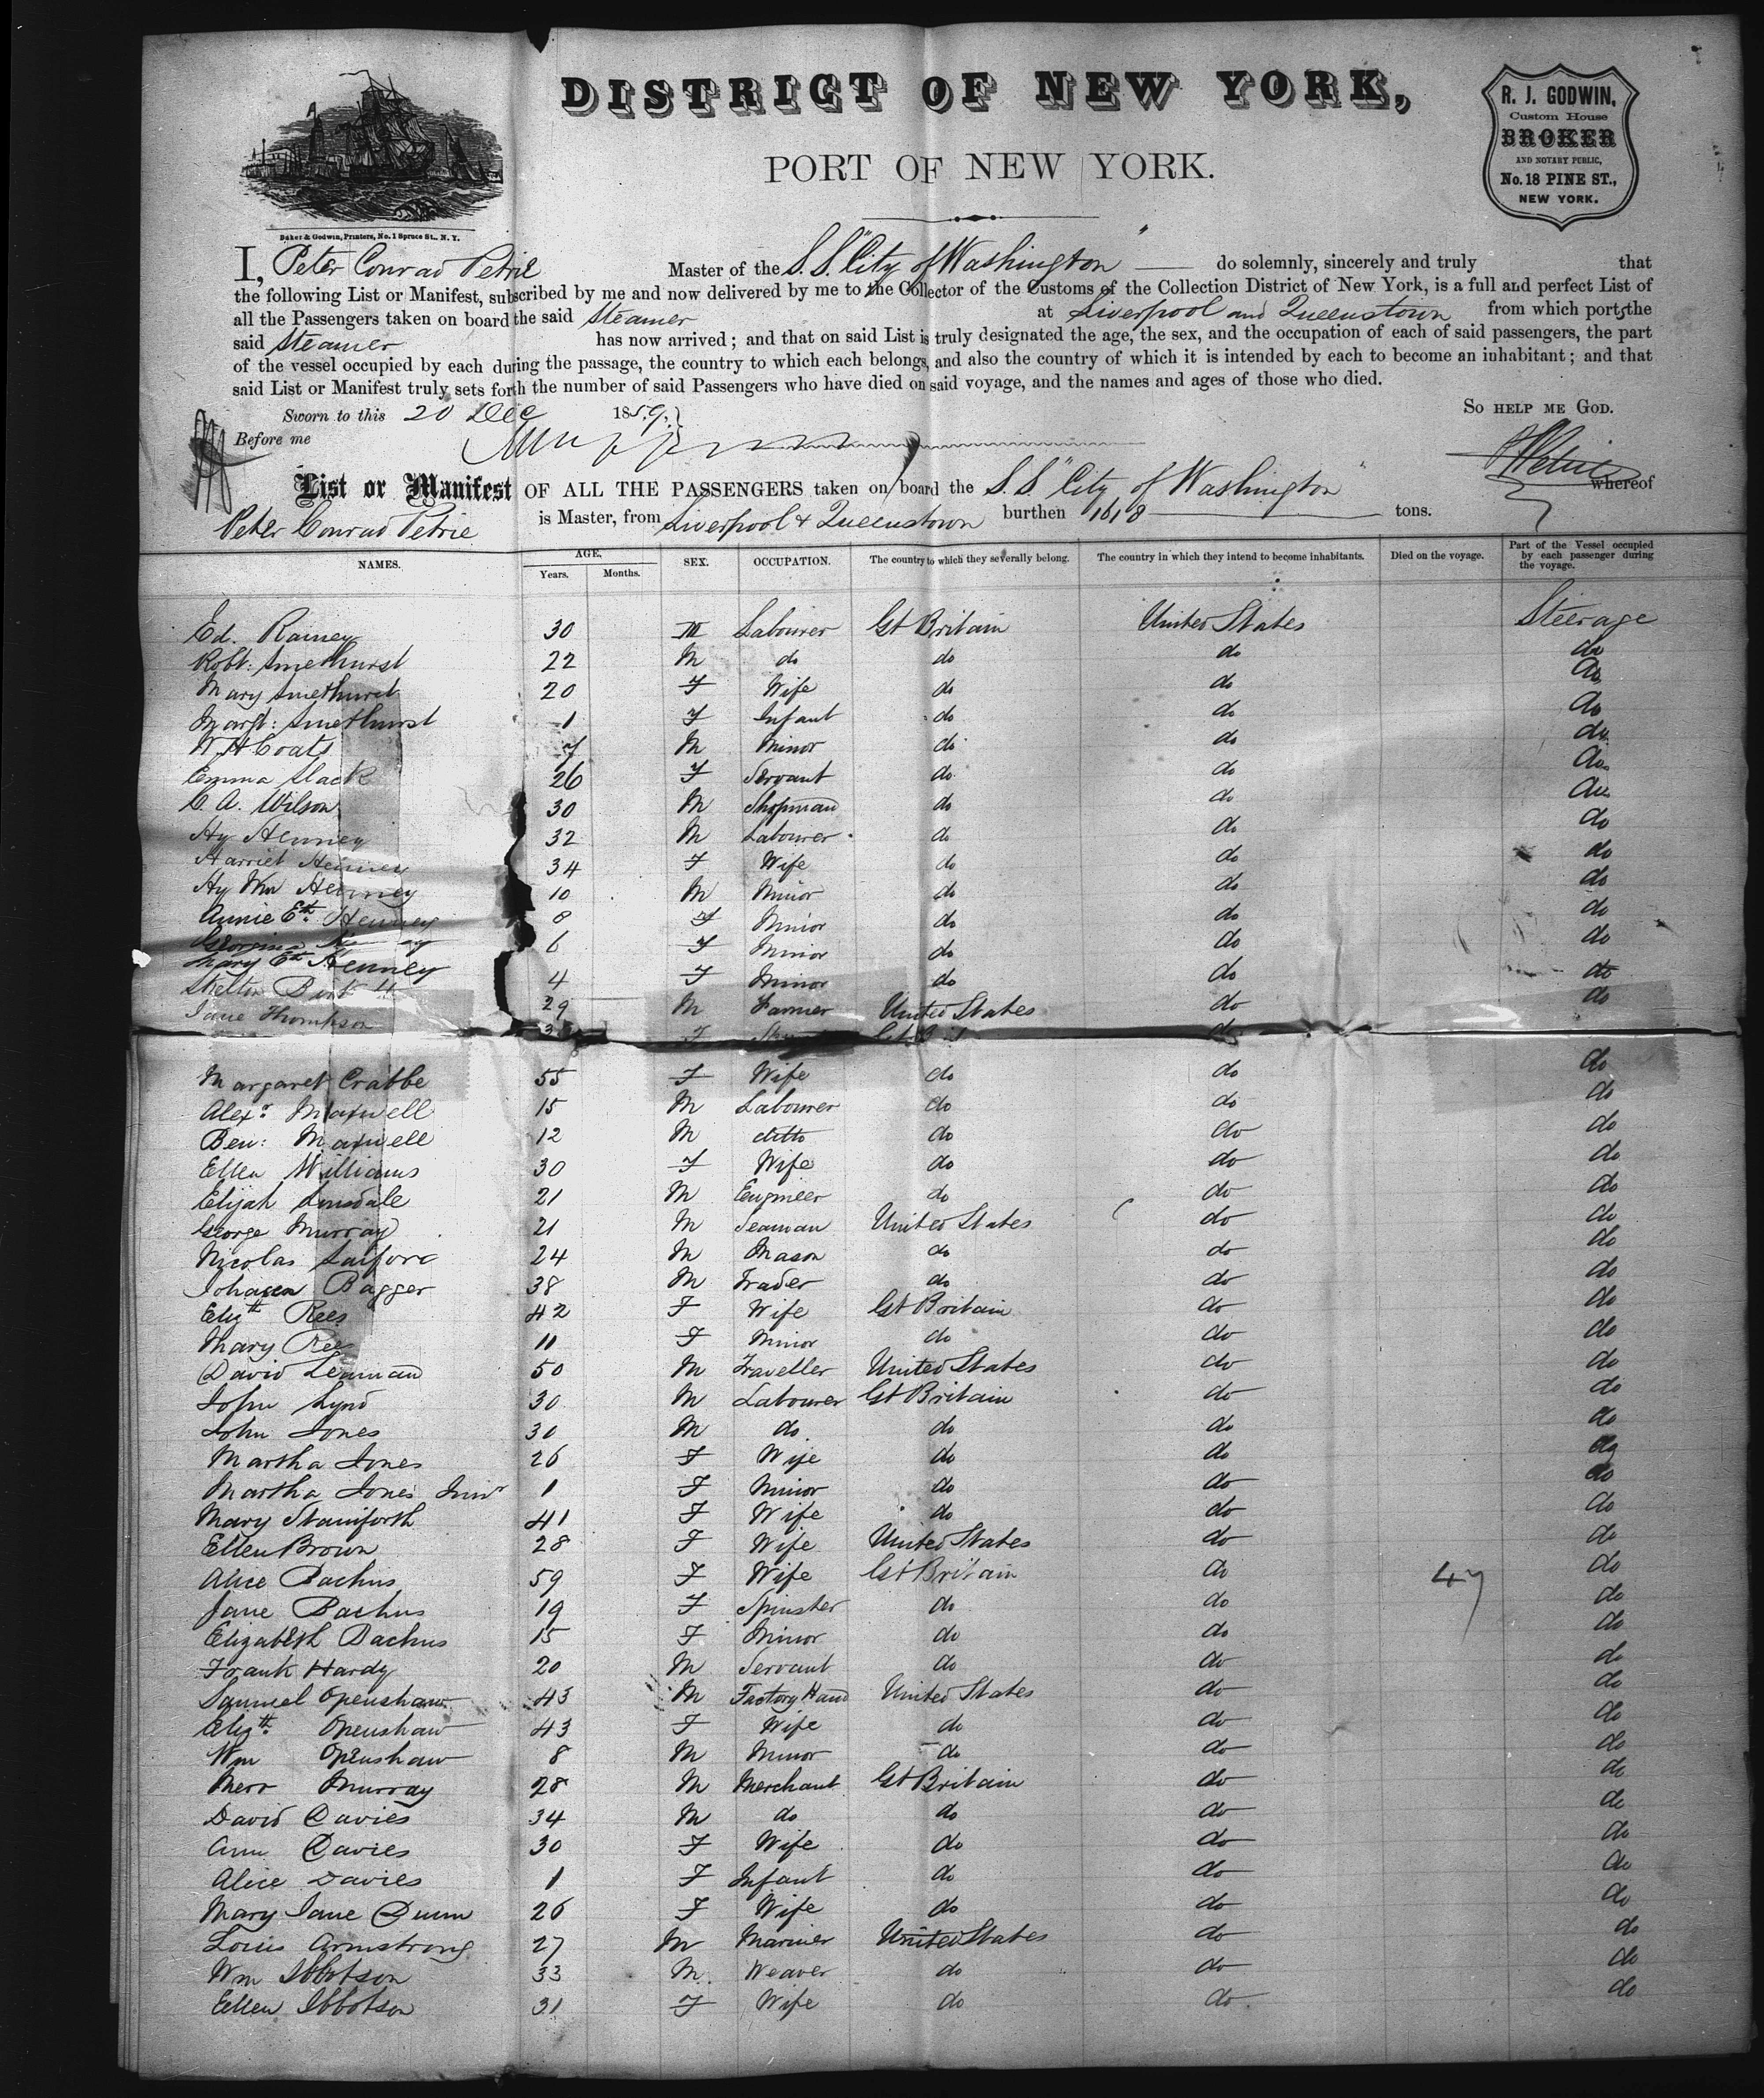 DISTRICT OF NEW YORK,
PORT OF NEW YORK.
R. J. GODWIN,
Custom House
BROKER
AND NOTARY PUBLIC,
No. 18 PINE ST.,
NEW YORK.
Baker & Godwin, Printers, No. 1 Spruce St., N. Y.
I, Peter Conrad Petrie Master of the S.S. "City of Washington" do solemnly, sincerely and truly that
the following List or Manifest, subscribed by me and now delivered by me to the Collector of the Customs of the Collection District of New York, is a full and perfect List of
all the Passengers taken on board the said Steamer at Liverpool and Queenstown from which ports the
said Steamer has now arrived; and that on said List is truly designated the age, the sex, and the occupation of each of said passengers, the part
of the vessel occupied by each during the passage, the country to which each belongs, and also the country of which it is intended by each to become an inhabitant; and that
said List or Manifest truly sets forth the number of said Passengers who have died on said voyage, and the names and ages of those who died.
Sworn to this 20 Dec 1859. So HELP ME GOD.
Before me
List or Manifest OF ALL THE PASSENGERS taken on board the S.S. "City of Washington" whereof
Peter Conrad Petrie is Master, from Liverpool & Queenstown burthen 1618 tons.
NAMES. AGE. Years. Months. SEX. OCCUPATION. The country to which they severally belong. The country in which they intend to become inhabitants. Died on the voyage. Part of the Vessel occupied by each passenger during the voyage.
Ed. Rainey 30 M Labourer Gt Britain United States Steerage
Robt: Smethurst 22 M do do do do
Mary Smethurst 20 F Wife do do do
Margt: Smethurst 1 F Infant do do do
W H Coats 7 M Minor do do do
Emma Slack 26 F Servant do do do
C. A. Wilson 30 M Shopman do do do
Hy Henney 32 M Labourer do do do
Harriet Henney 34 F Wife do do do
Hy Wm Henney 10 M Minor do do do
Annie Eth. Henney 8 F Minor do do do
Georgina 6 F Minor do do do
Mary Eth Henney 4 F Minor do do do
29 M Farmer United States do do
Jane Thompson F do
Margaret Crabbe 55 F Wife do do do
Alexr. Maxwell 15 M Labourer do do do
Ben: Maxwell 12 M ditto do do do
Ellen Williams 30 F Wife do do do
Elijah Linsdale 21 M Engineer do do do
George Murray 21 M Seaman United States do do
Nicolas 24 M Mason do do do
Bagger 38 M Trader do do do
Elizth Rees 42 F Wife Gt Britain do do
Mary Rees 11 F Minor do do do
David Leaman 50 M Traveller United States do do
John Lynd 30 M Labourer Gt Britain do do
John Jones 30 M do do do do
Martha Jones 26 F Wife do do do
Martha Jones Junr 1 F Minor do do do
Mary Staniforth 41 F Wife do do do
Ellen Brown 28 F Wife United States do do
Alice Bachus 59 F Wife Gt Britain do 47 do
Jane Bachus 19 F Spinster do do do
Elizabeth Bachus 15 F Minor do do do
Frank Hardy 20 M Servant do do do
Samuel Openshaw 43 M Factory Hand United States do do
Elizth. Openshaw 43 F Wife do do do
Wm Openshaw 8 M Minor do do do
Murray 28 M Merchant Gt Britain do do
David Davies 34 M do do do do
Ann Davies 30 F Wife do do do
Alice Davies 1 F Infant do do do
Mary Jane Dunn 26 F Wife do do do
Louis Armstrong 27 M Mariner United States do do
Wm Ibbotson 33 M Weaver do do do
Ellen Ibbotson 31 F Wife do do do